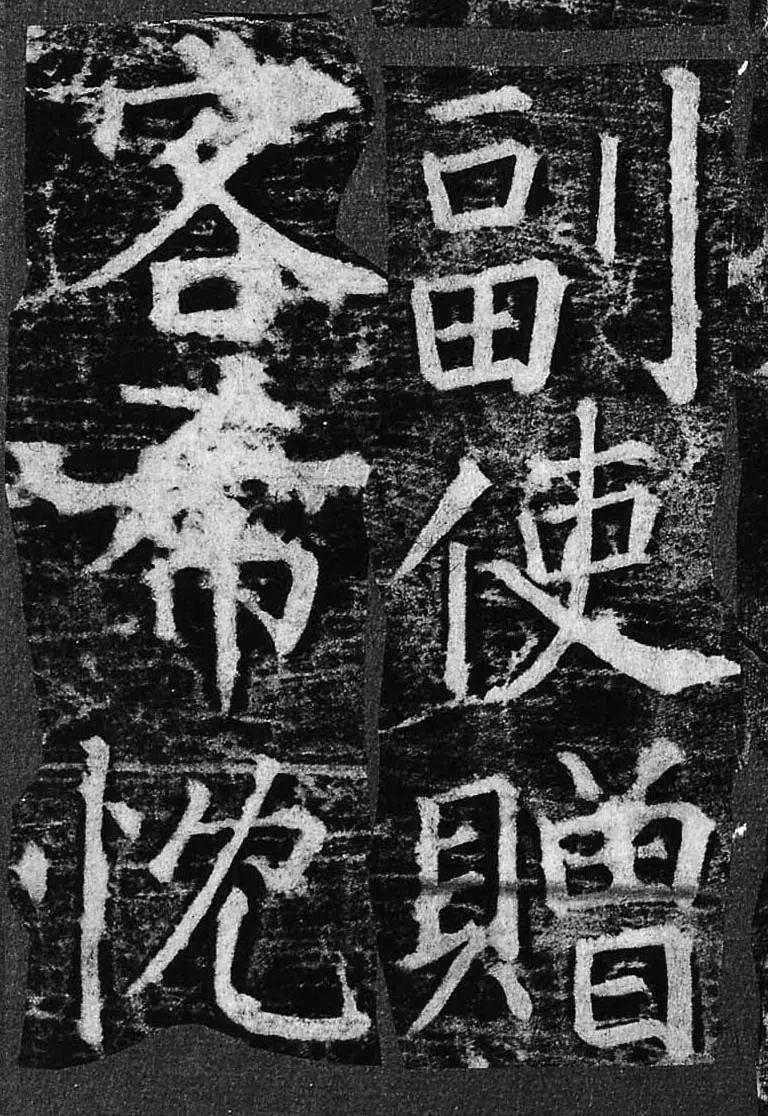 副使贈
客希忱